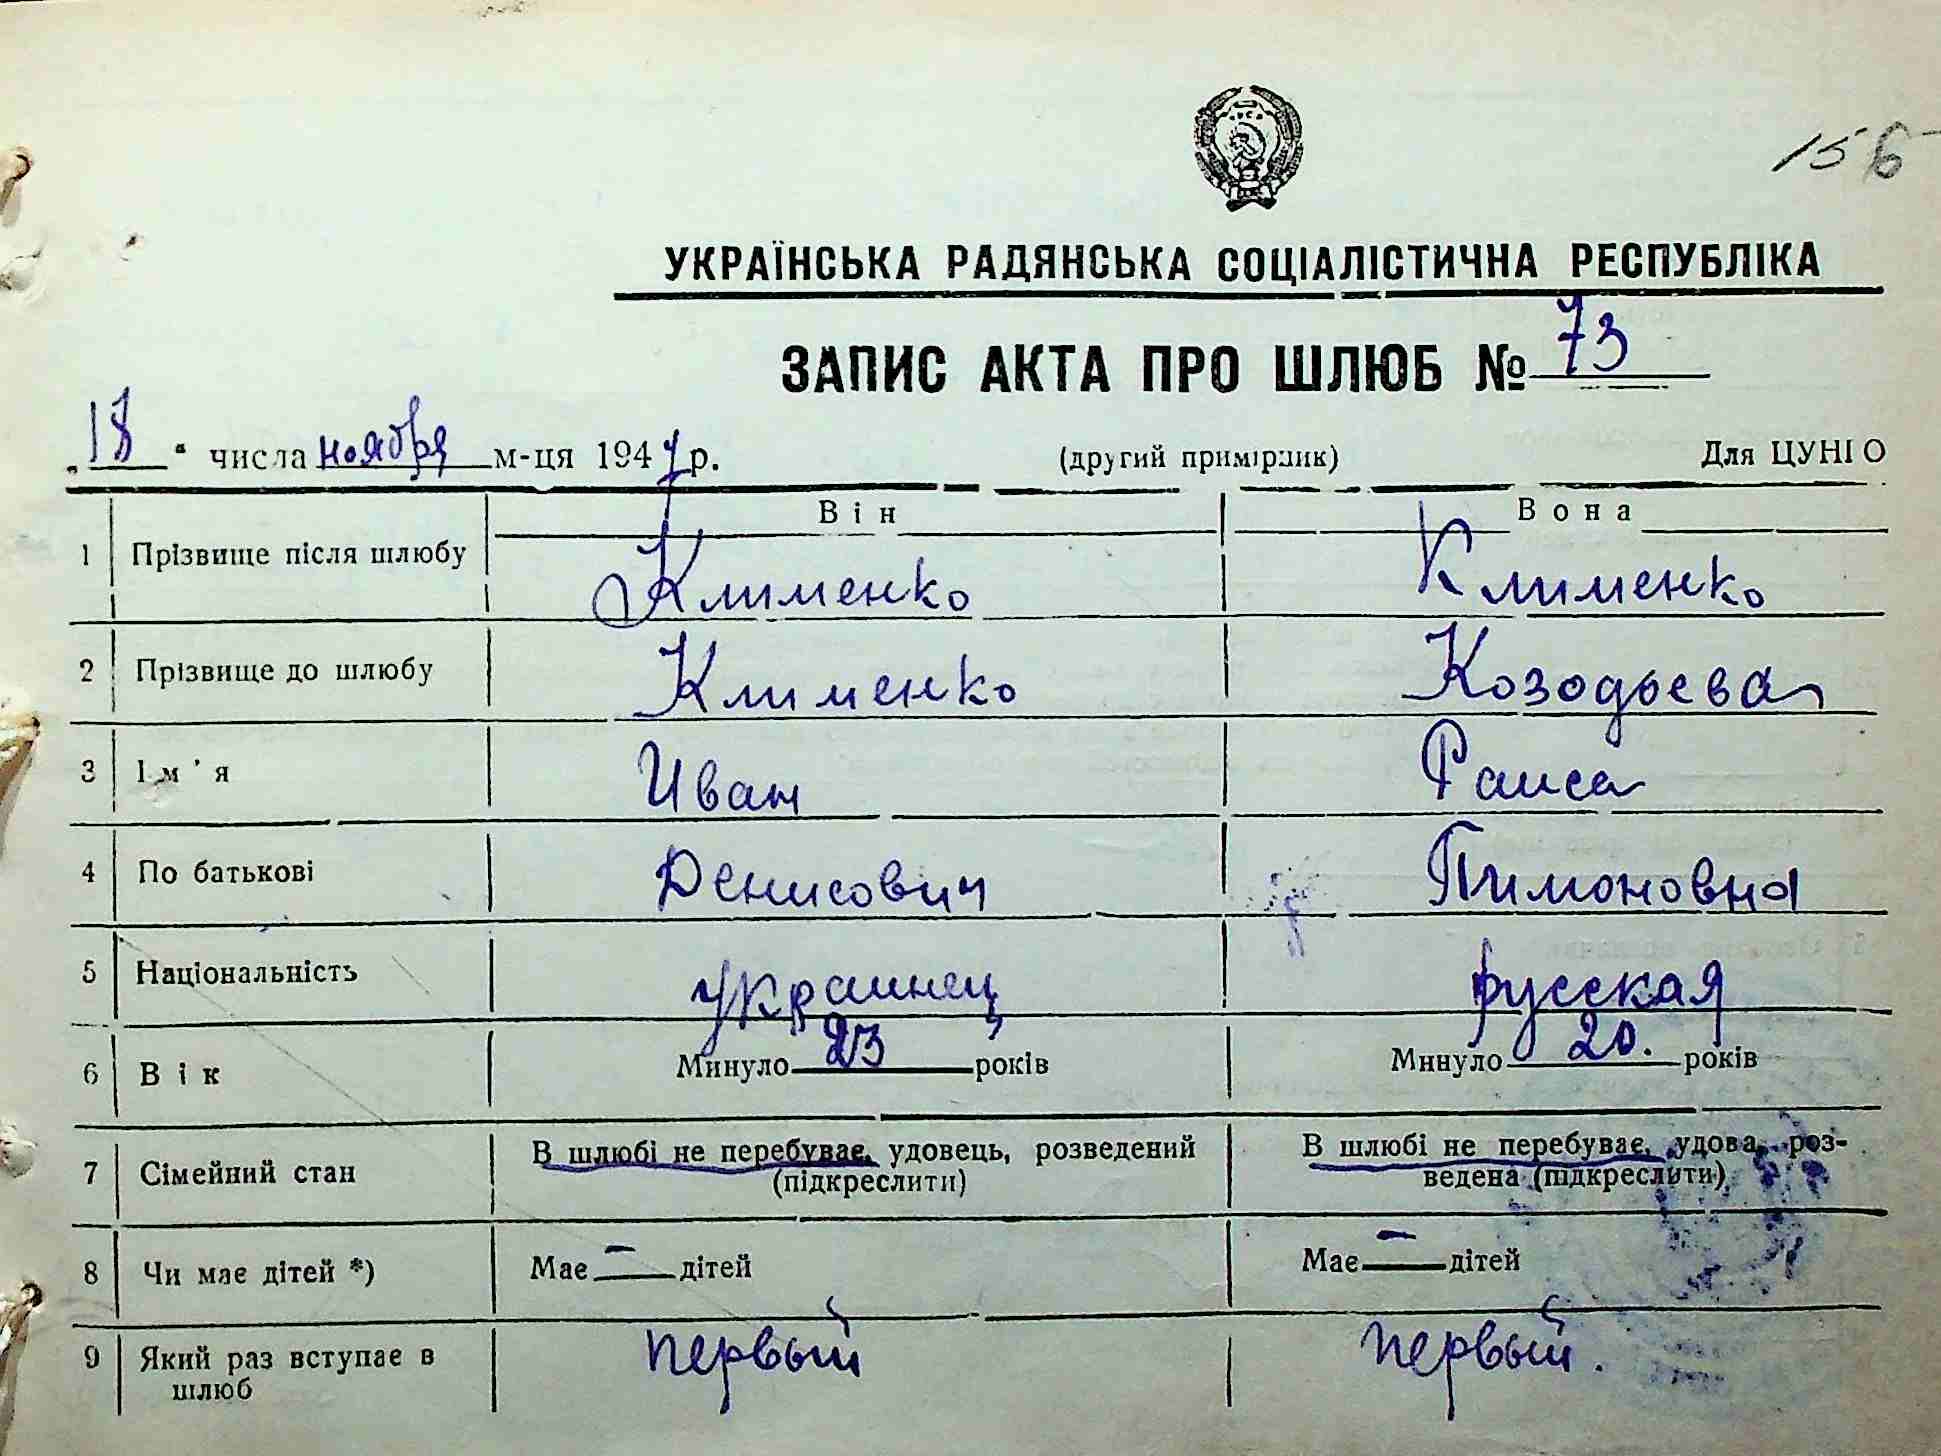 156
УКРАЇНСЬКА РАДЯНСЬКА СОЦІАЛІСТИЧНА РЕСПУБЛІКА
ЗАПИС АКТА ПРО ШЛЮБ № 73
„18“ числа ноября м-ця 1947 р. (другий примірник) Для ЦУНГО
Він Вона
1 Прізвище після шлюбу Клименко Клименко
2 Прізвище до шлюбу Клименко Козодьева
3 Ім'я Иван Раиса
4 По батькові Денисович Пимоновна
5 Національність украинец русская
6 Вік Минуло 23 років Минуло 20. років
7 Сімейний стан В шлюбі не перебуває, удовець, розведений (підкреслити) В шлюбі не перебуває, удова, роз-
ведена (підкреслити)
8 Чи має дітей *) Має — дітей Має — дітей
9 Який раз вступає в шлюб первый первый.